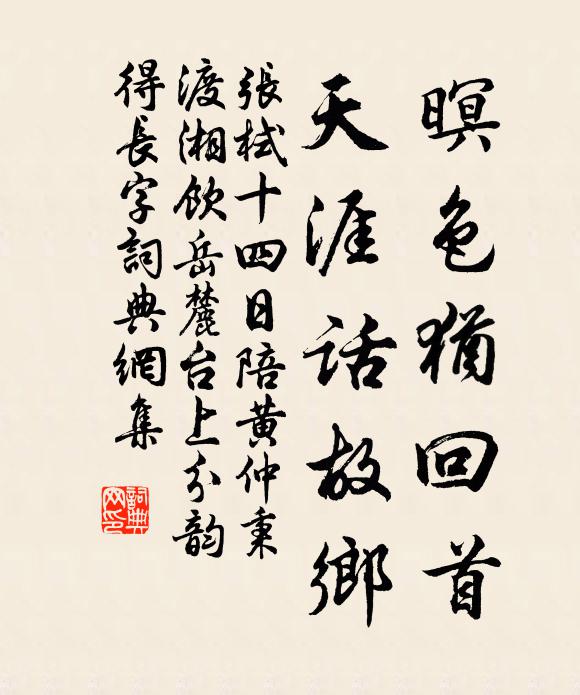 暝色猶回首
天涯話故鄉
張栻十四日陪黃仲秉
渡湘飲岳麓台上分韵
得長字詞典網集
詞典
网印